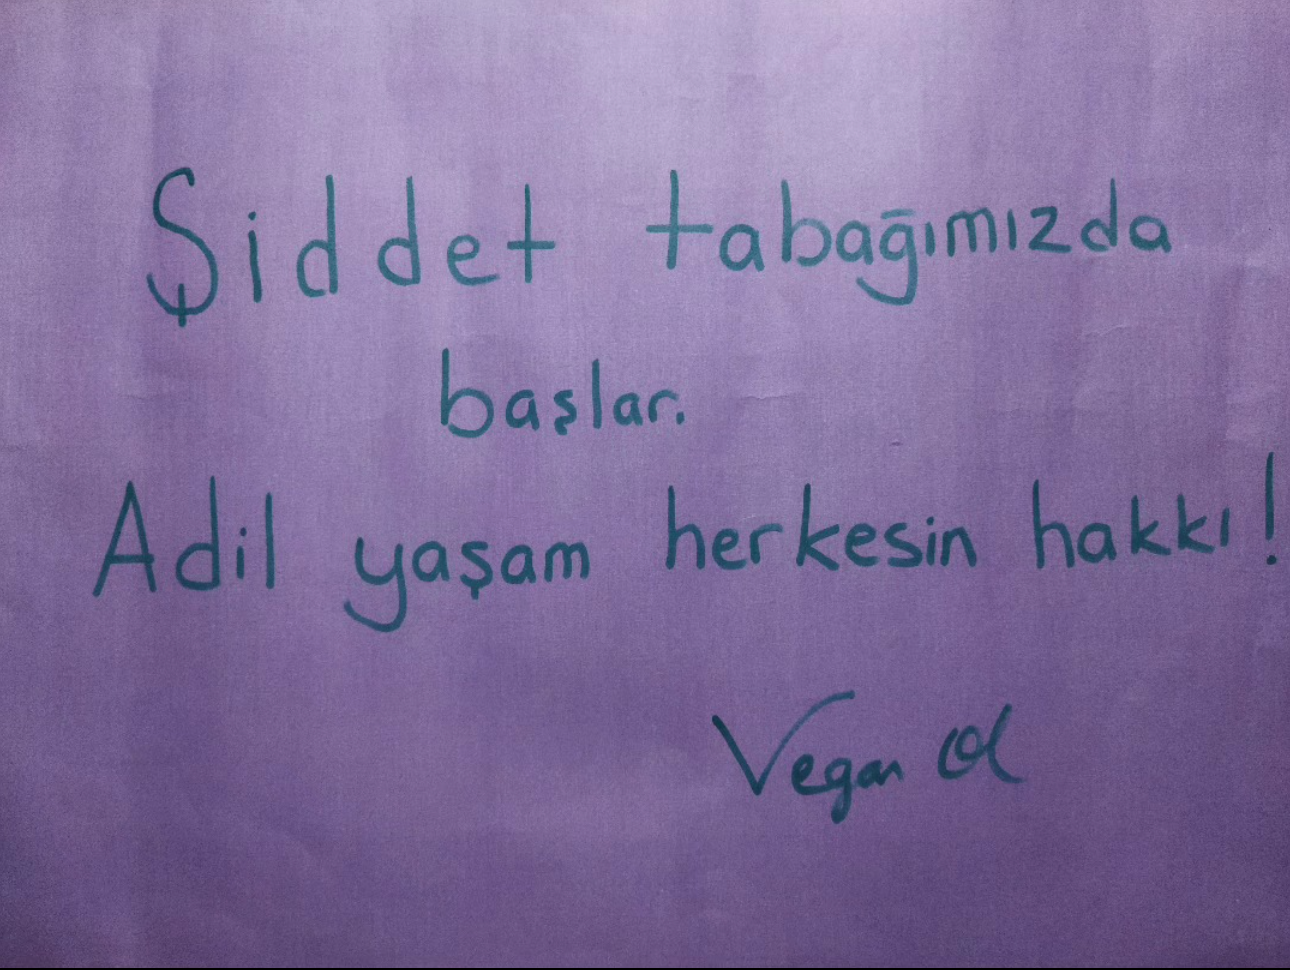 Şiddet tabağımızda
başlar.
Adil yaşam herkesin hakkı!
Vegan ol